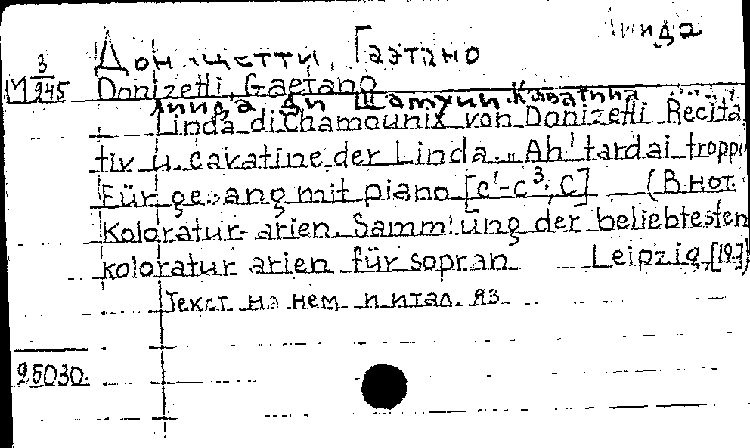 Линда
Доницетти, Гаэтано
М 3/245
Donizetti, Gaetano
Линда ди Шамуни. Каватина
Linda di Chamounix von Donizetti Recita
tiv u. cavatine der Linda. „Ah! tardai troppo
Für gesang mit piano [c'-c³, C] (В нот.
Koloratur-arien. Sammlung der beliebtesten
koloratur arien für sopran Leipzig, [19?]
Текст на нем. и итал. яз.
25030.